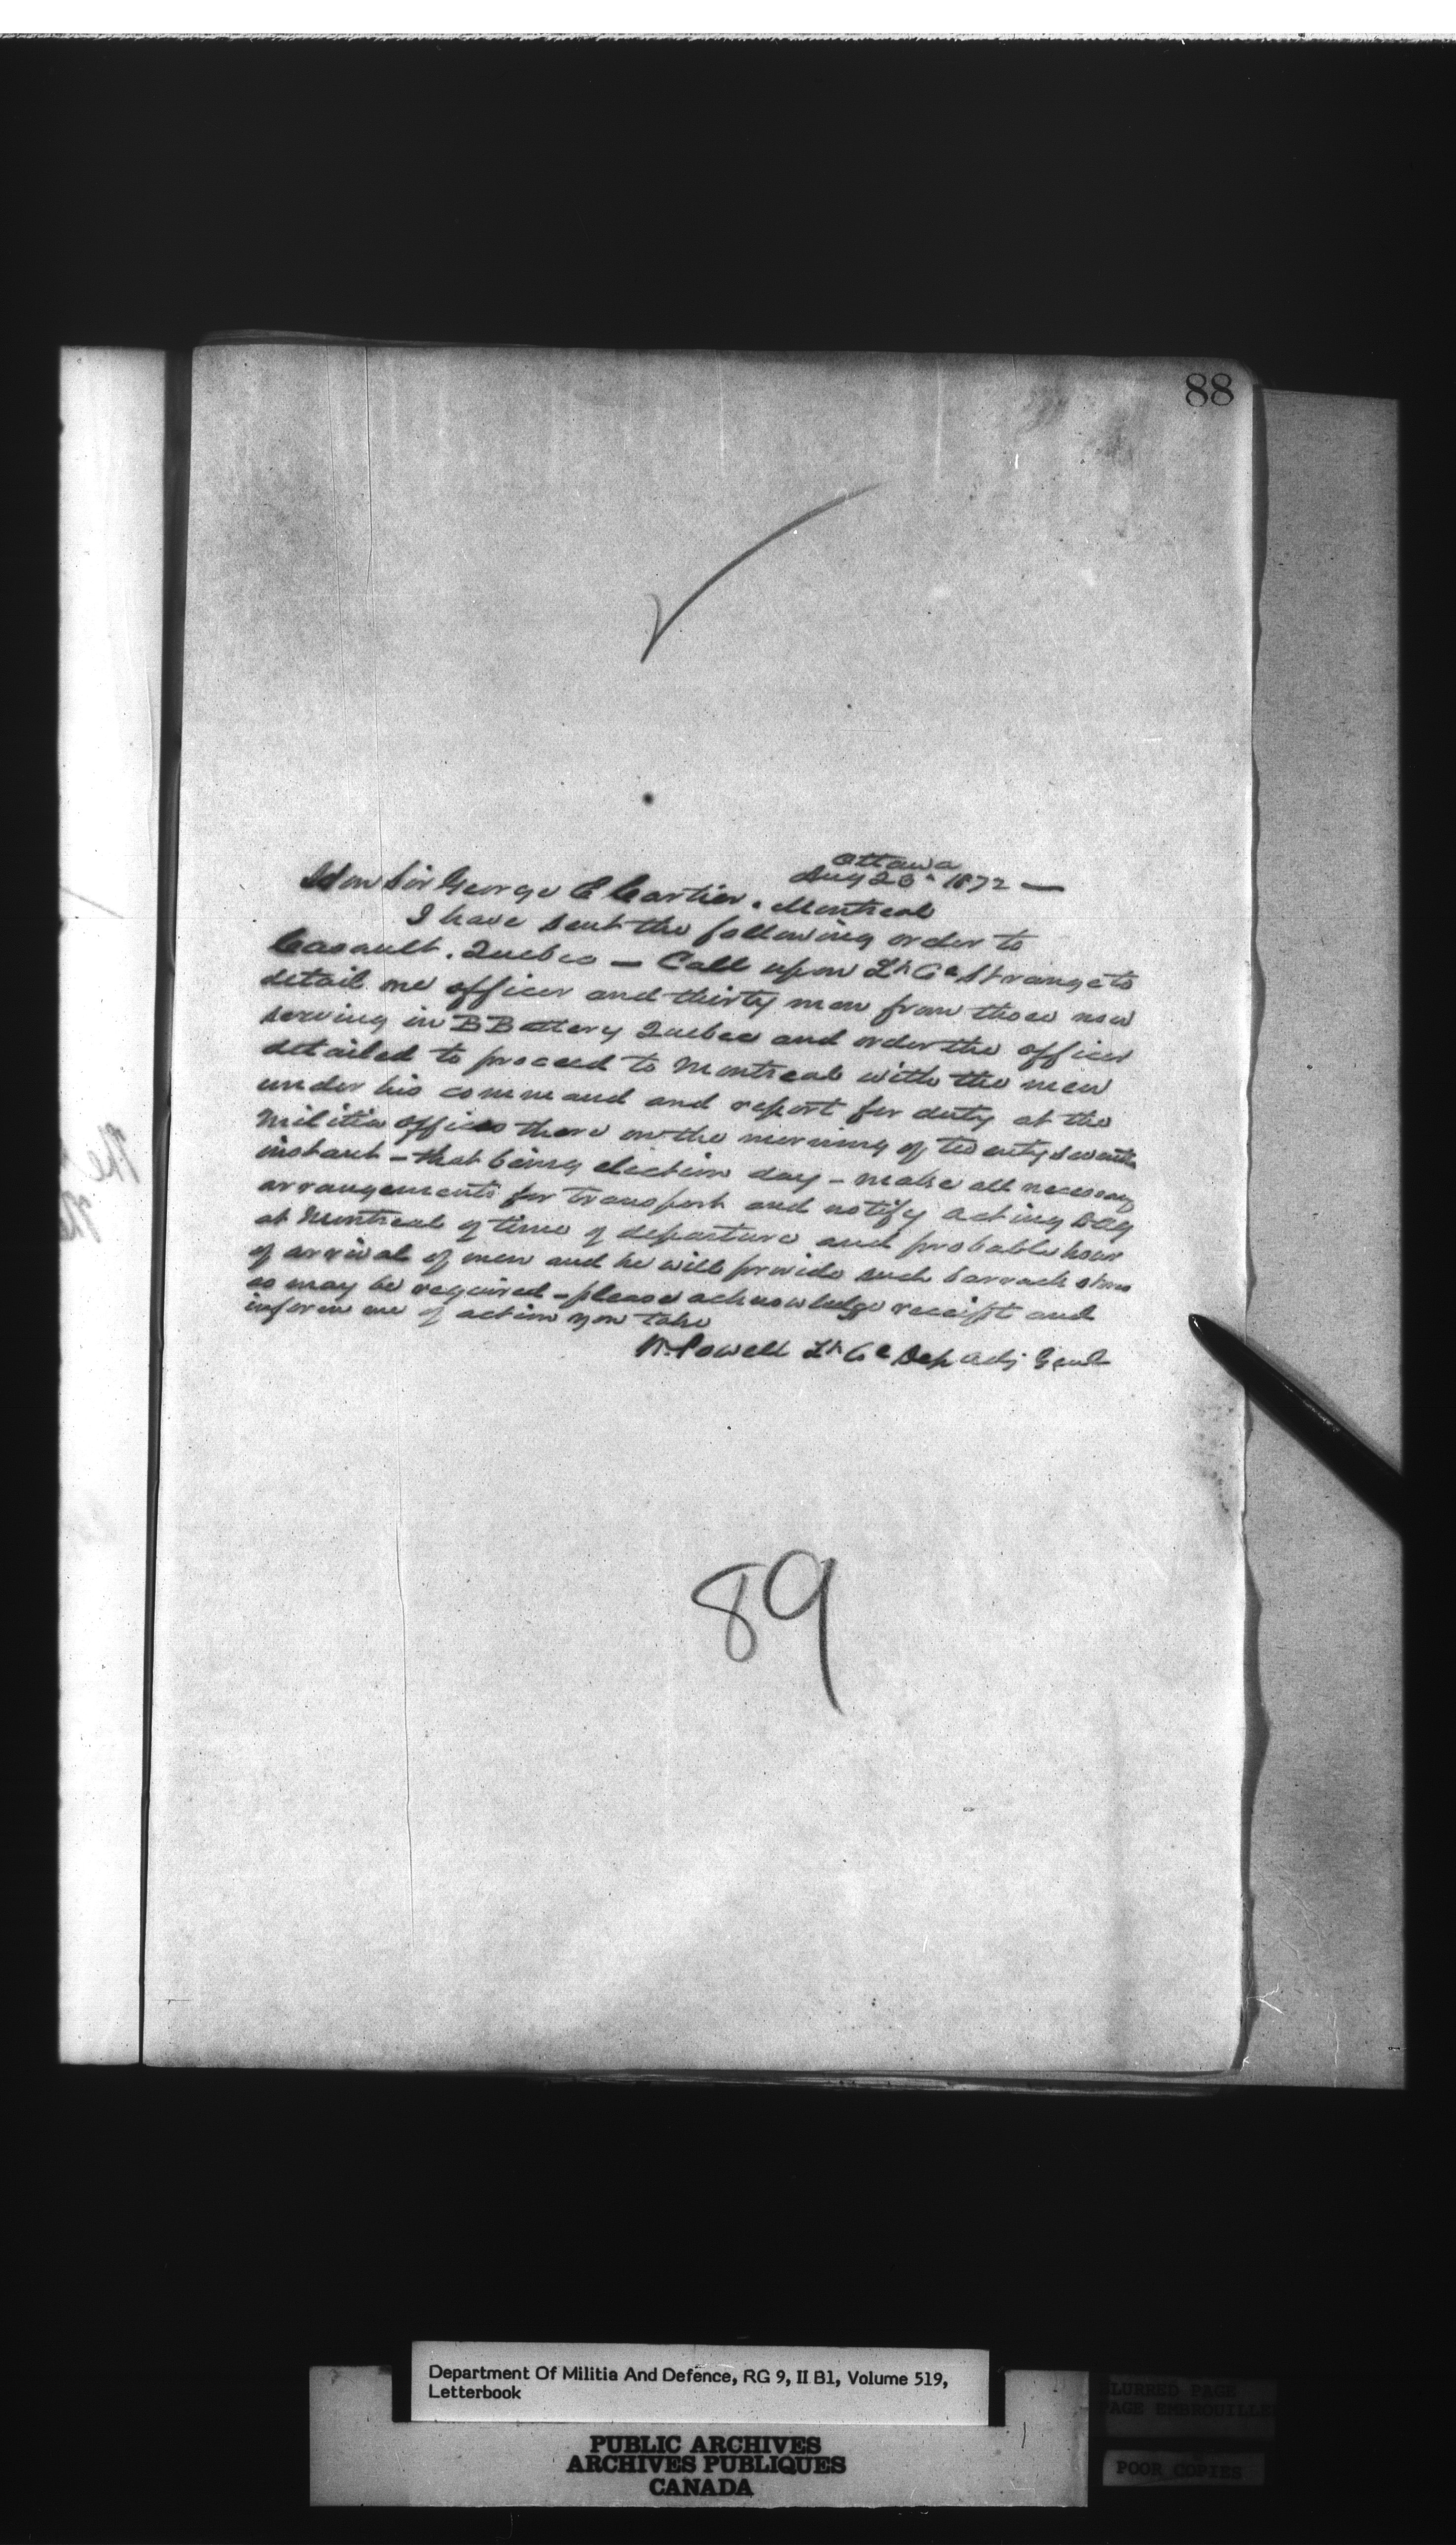 88
Ottawa
Aug 23d 1872 —
Hon Sir George E Cartier. Montreal
I have sent the following order to
Casault. Quebec — Call upon Lt Cl Strange to
detail one officer and thirty men from those now
serving in B Battery Quebec and order the officer
detailed to proceed to Montreal with the men
under his command and report for duty at the
Militia office there on the morning of twenty seventh
instant – that being election day – make all necessary
arrangements for transport and notify acting DAG
at Montreal of time of departure and probable hour
of arrival of men and he will provide such barrack stores
as may be required – please acknowledge receipt and
inform me of action you take
W. Powell Lt Cl Dep Adj Genl
89
Department Of Militia And Defence, RG 9, II B1, Volume 519,
Letterbook
PUBLIC ARCHIVES
ARCHIVES PUBLIQUES
CANADA
BLURRED PAGE
PAGE EMBROUILLE
POOR COPIES